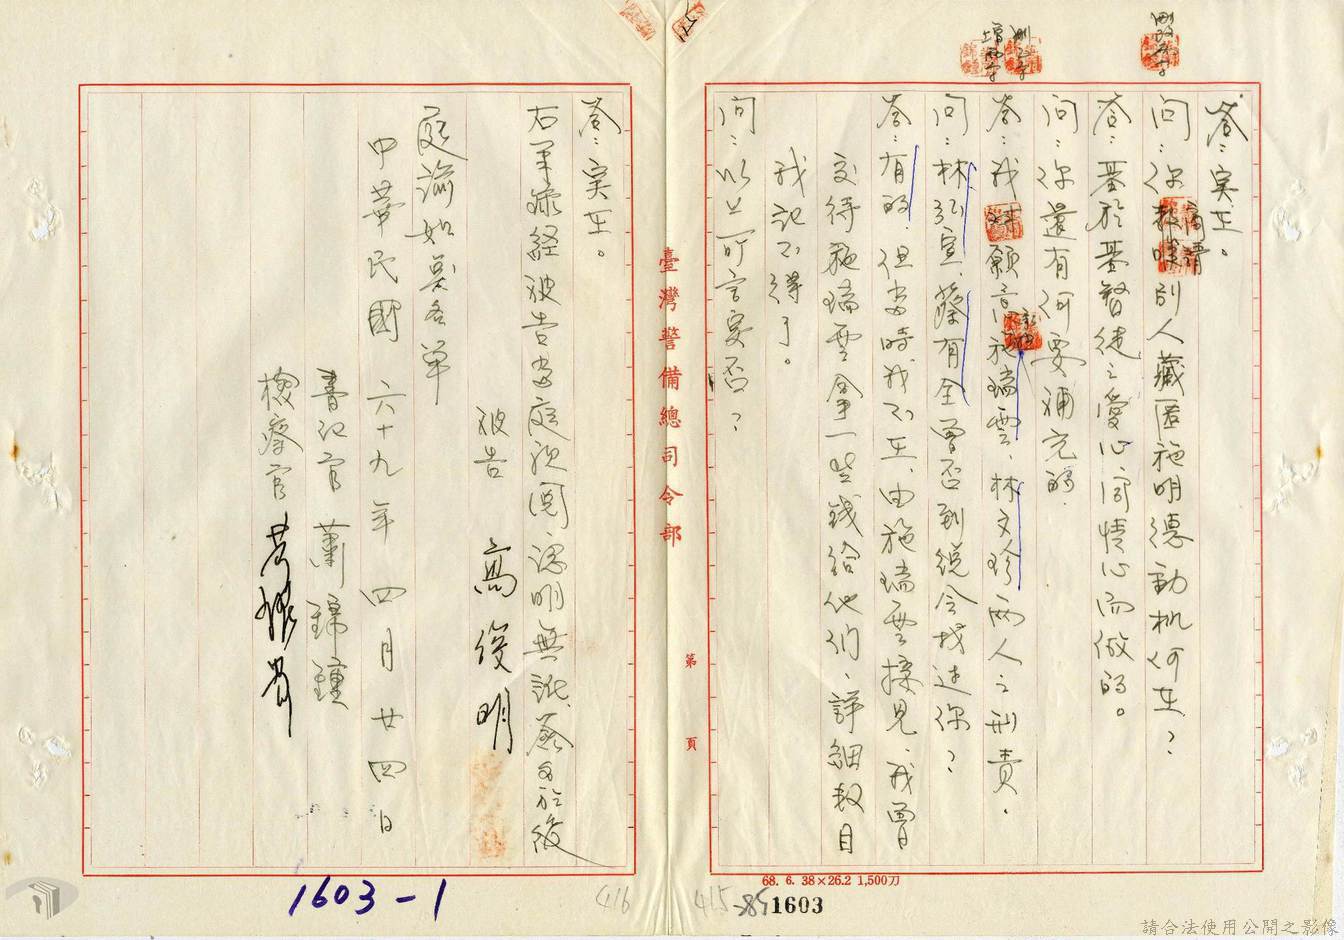 刪改五字
刪三字
增兩字
答：実在。
問：你教唆商請別人藏匿施明德動机何在？
答：基於基督徒之愛心同情心而做的。
問：你還有何要補充的
答：我願意施瑞雲、林文珍兩人之刑責。
問：林弘宣、蔡有全曾否到總會找过你？
答：有的，但当時我不在，由施瑞雲接見，我曾
交待施瑞雲拿一些錢給他們，詳細数目
我記不得了。
問：以上所言実否？
答：実在。
右筆錄経被告当庭親閱認明無訛簽名於後
被告 高俊明
庭諭如另各單
中華民國 六十九年 四月 廿四日
書記官 蕭錦鍾
檢察官
臺灣警備總司令部
第 頁
68. 6. 38×26.2 1,500刀
1603-1
416
415
1603
請合法使用公開之影像